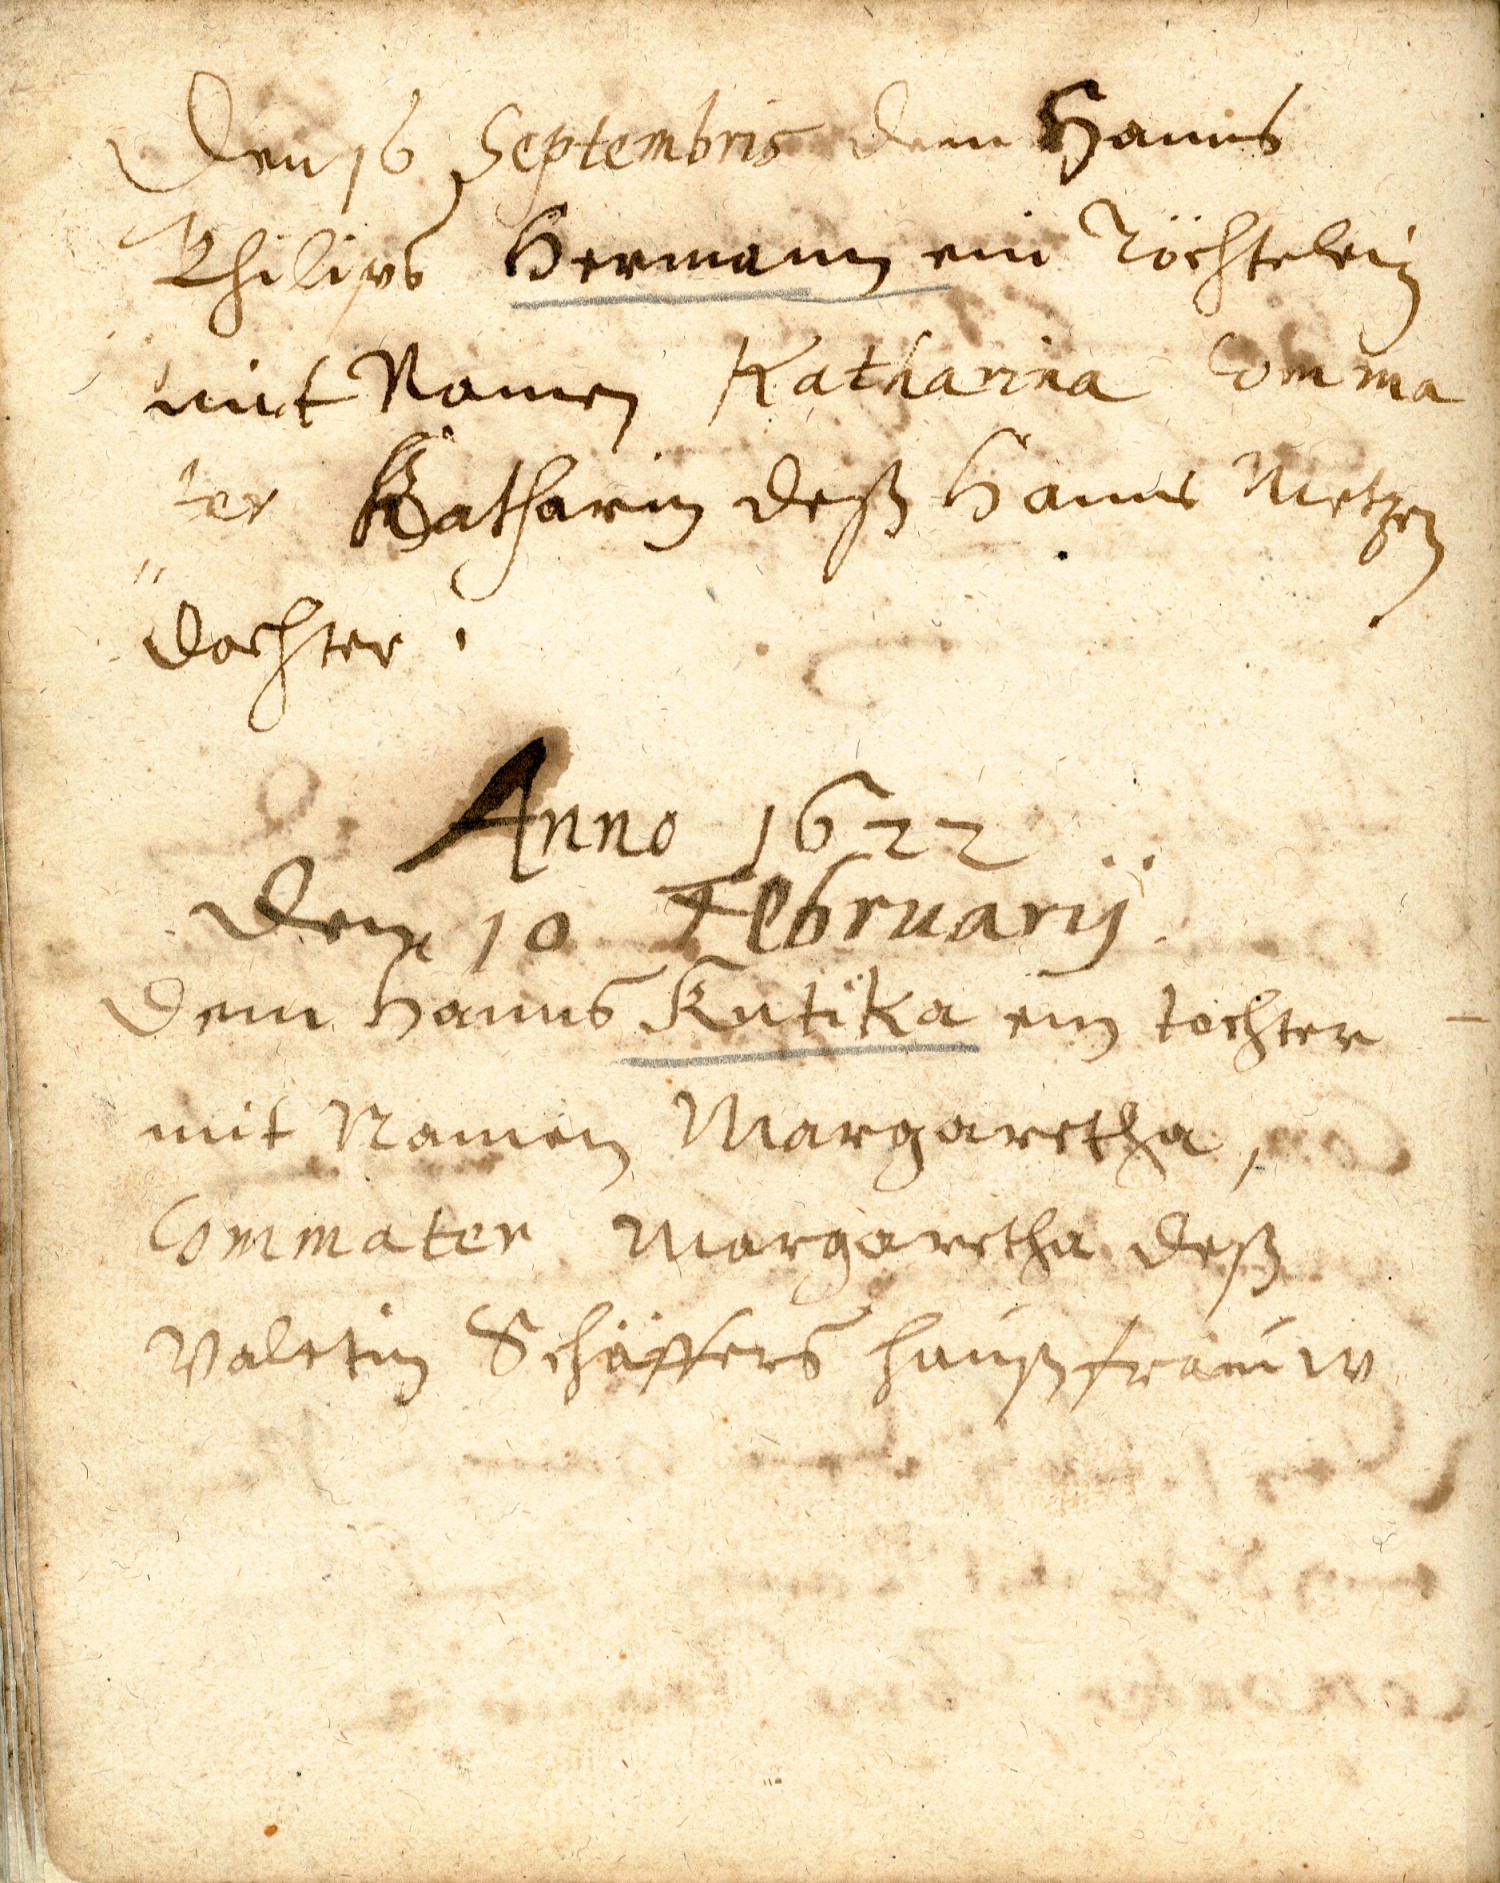 Den 16 Septembris dem Hanns
Philips Hermann ein Töchtelein
mit Namen Katharina Comma
ter Katharin deß Hanns Metzen
dochter.
Anno 1622
Den 10 Februarij
Dem Hanns Kutika ein tochter
mit Namen Margaretha,
Commater Margaretha deß
Valetin Schäffers haußfrauw